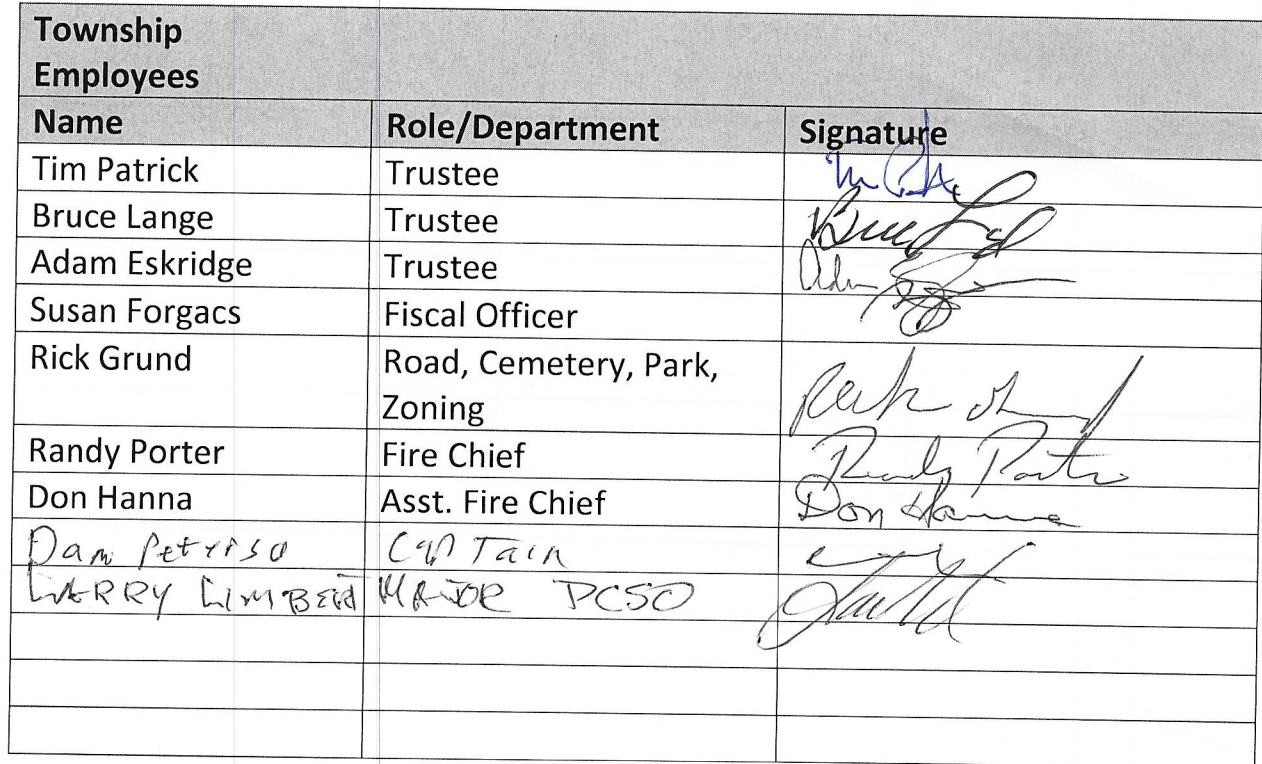 Township
Employees
Name Role/Department Signature
Tim Patrick Trustee
Bruce Lange Trustee Bruce
Adam Eskridge Trustee Adam
Susan Forgacs Fiscal Officer
Rick Grund Road, Cemetery, Park,
Zoning
Randy Porter Fire Chief Randy Porter
Don Hanna Asst. Fire Chief Don Hanna
Dam Captain
LARRY MAJOR PCSO